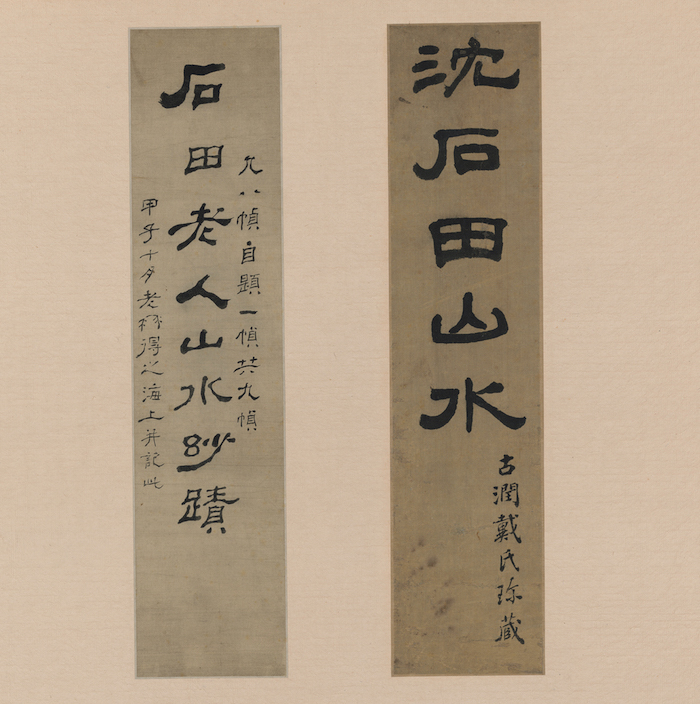 沈石田山水
古潤戴氏珍藏
凡八幀自題一幀共九幀
石田老人山水玅蹟
甲子十月老得之海上并記此